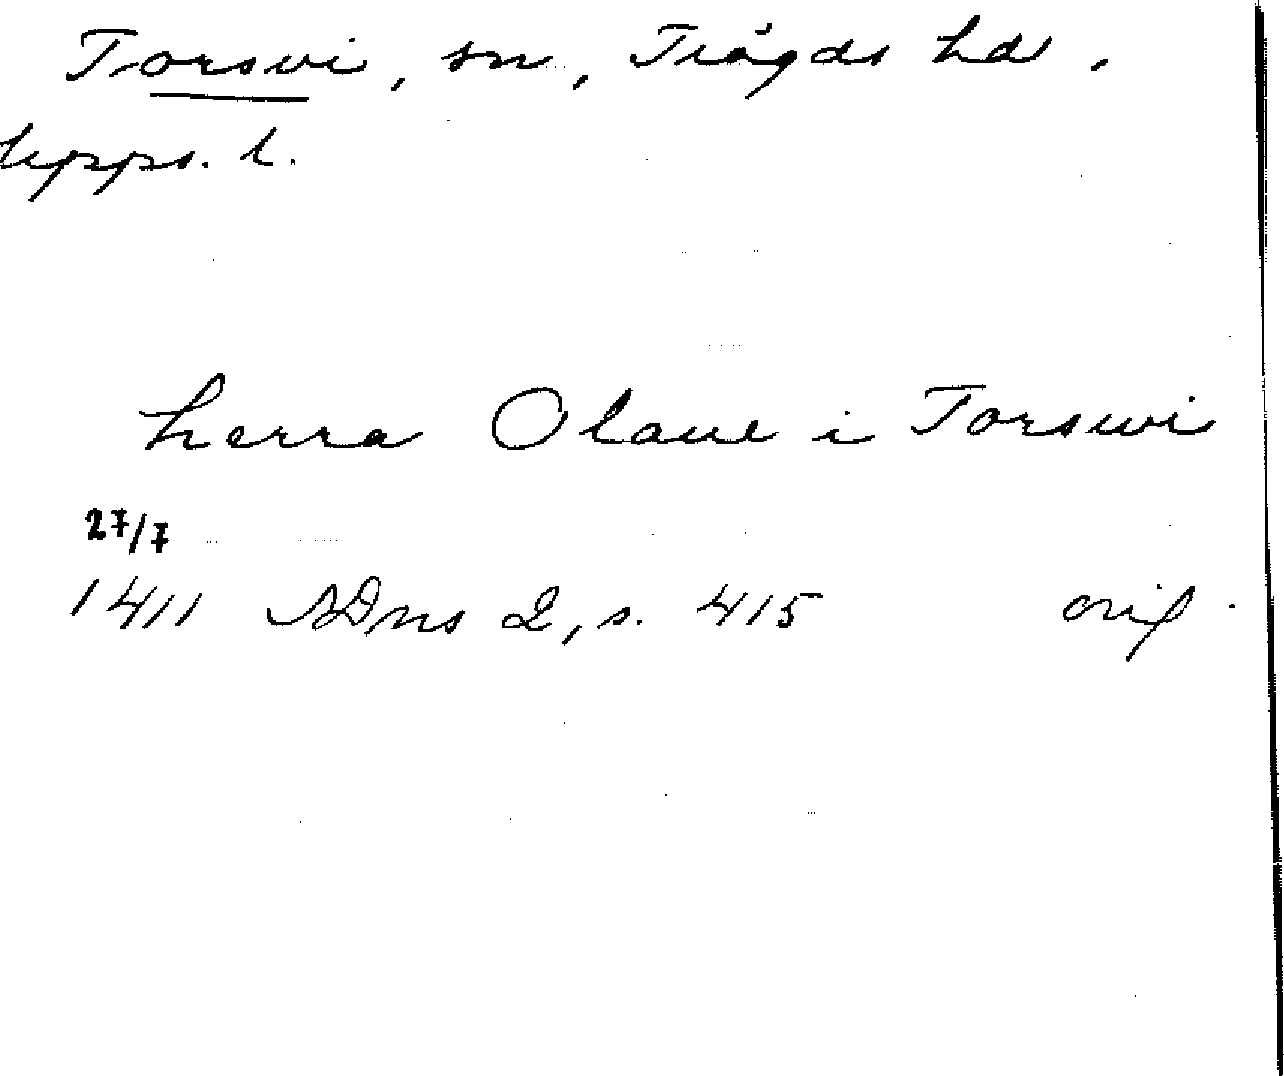 Torsvi, sn, Trögds hd.
Upps. l.
herra Olaue i Torswi
27/7
1411 SDns 2, s. 415 orig.